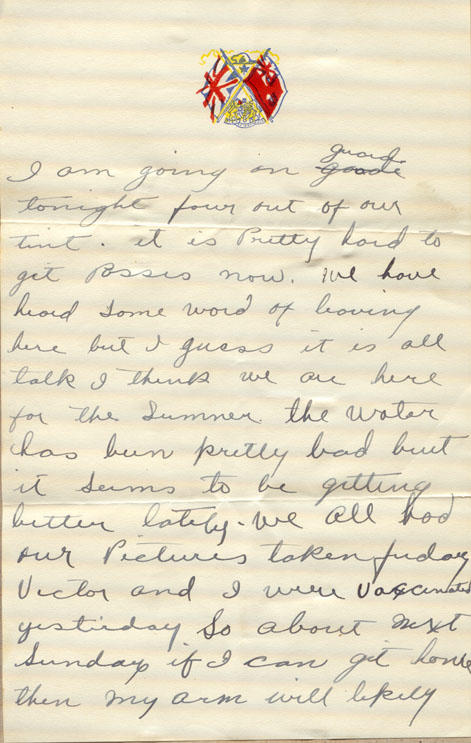 I am going on guard
tonight four out of our
tint. it is Pretty hard to
git Psses now. We have
heard some word of leaving
here but I guess it is all
talk I think we are here
for the Summer the Water
has bun pretty bad but
it seems to be gitting
better lately. We all had
our Pictures taken friday
Victor and I were Vaccinated
yestirday So about next
Sunday if I can git home
then my arm will likely